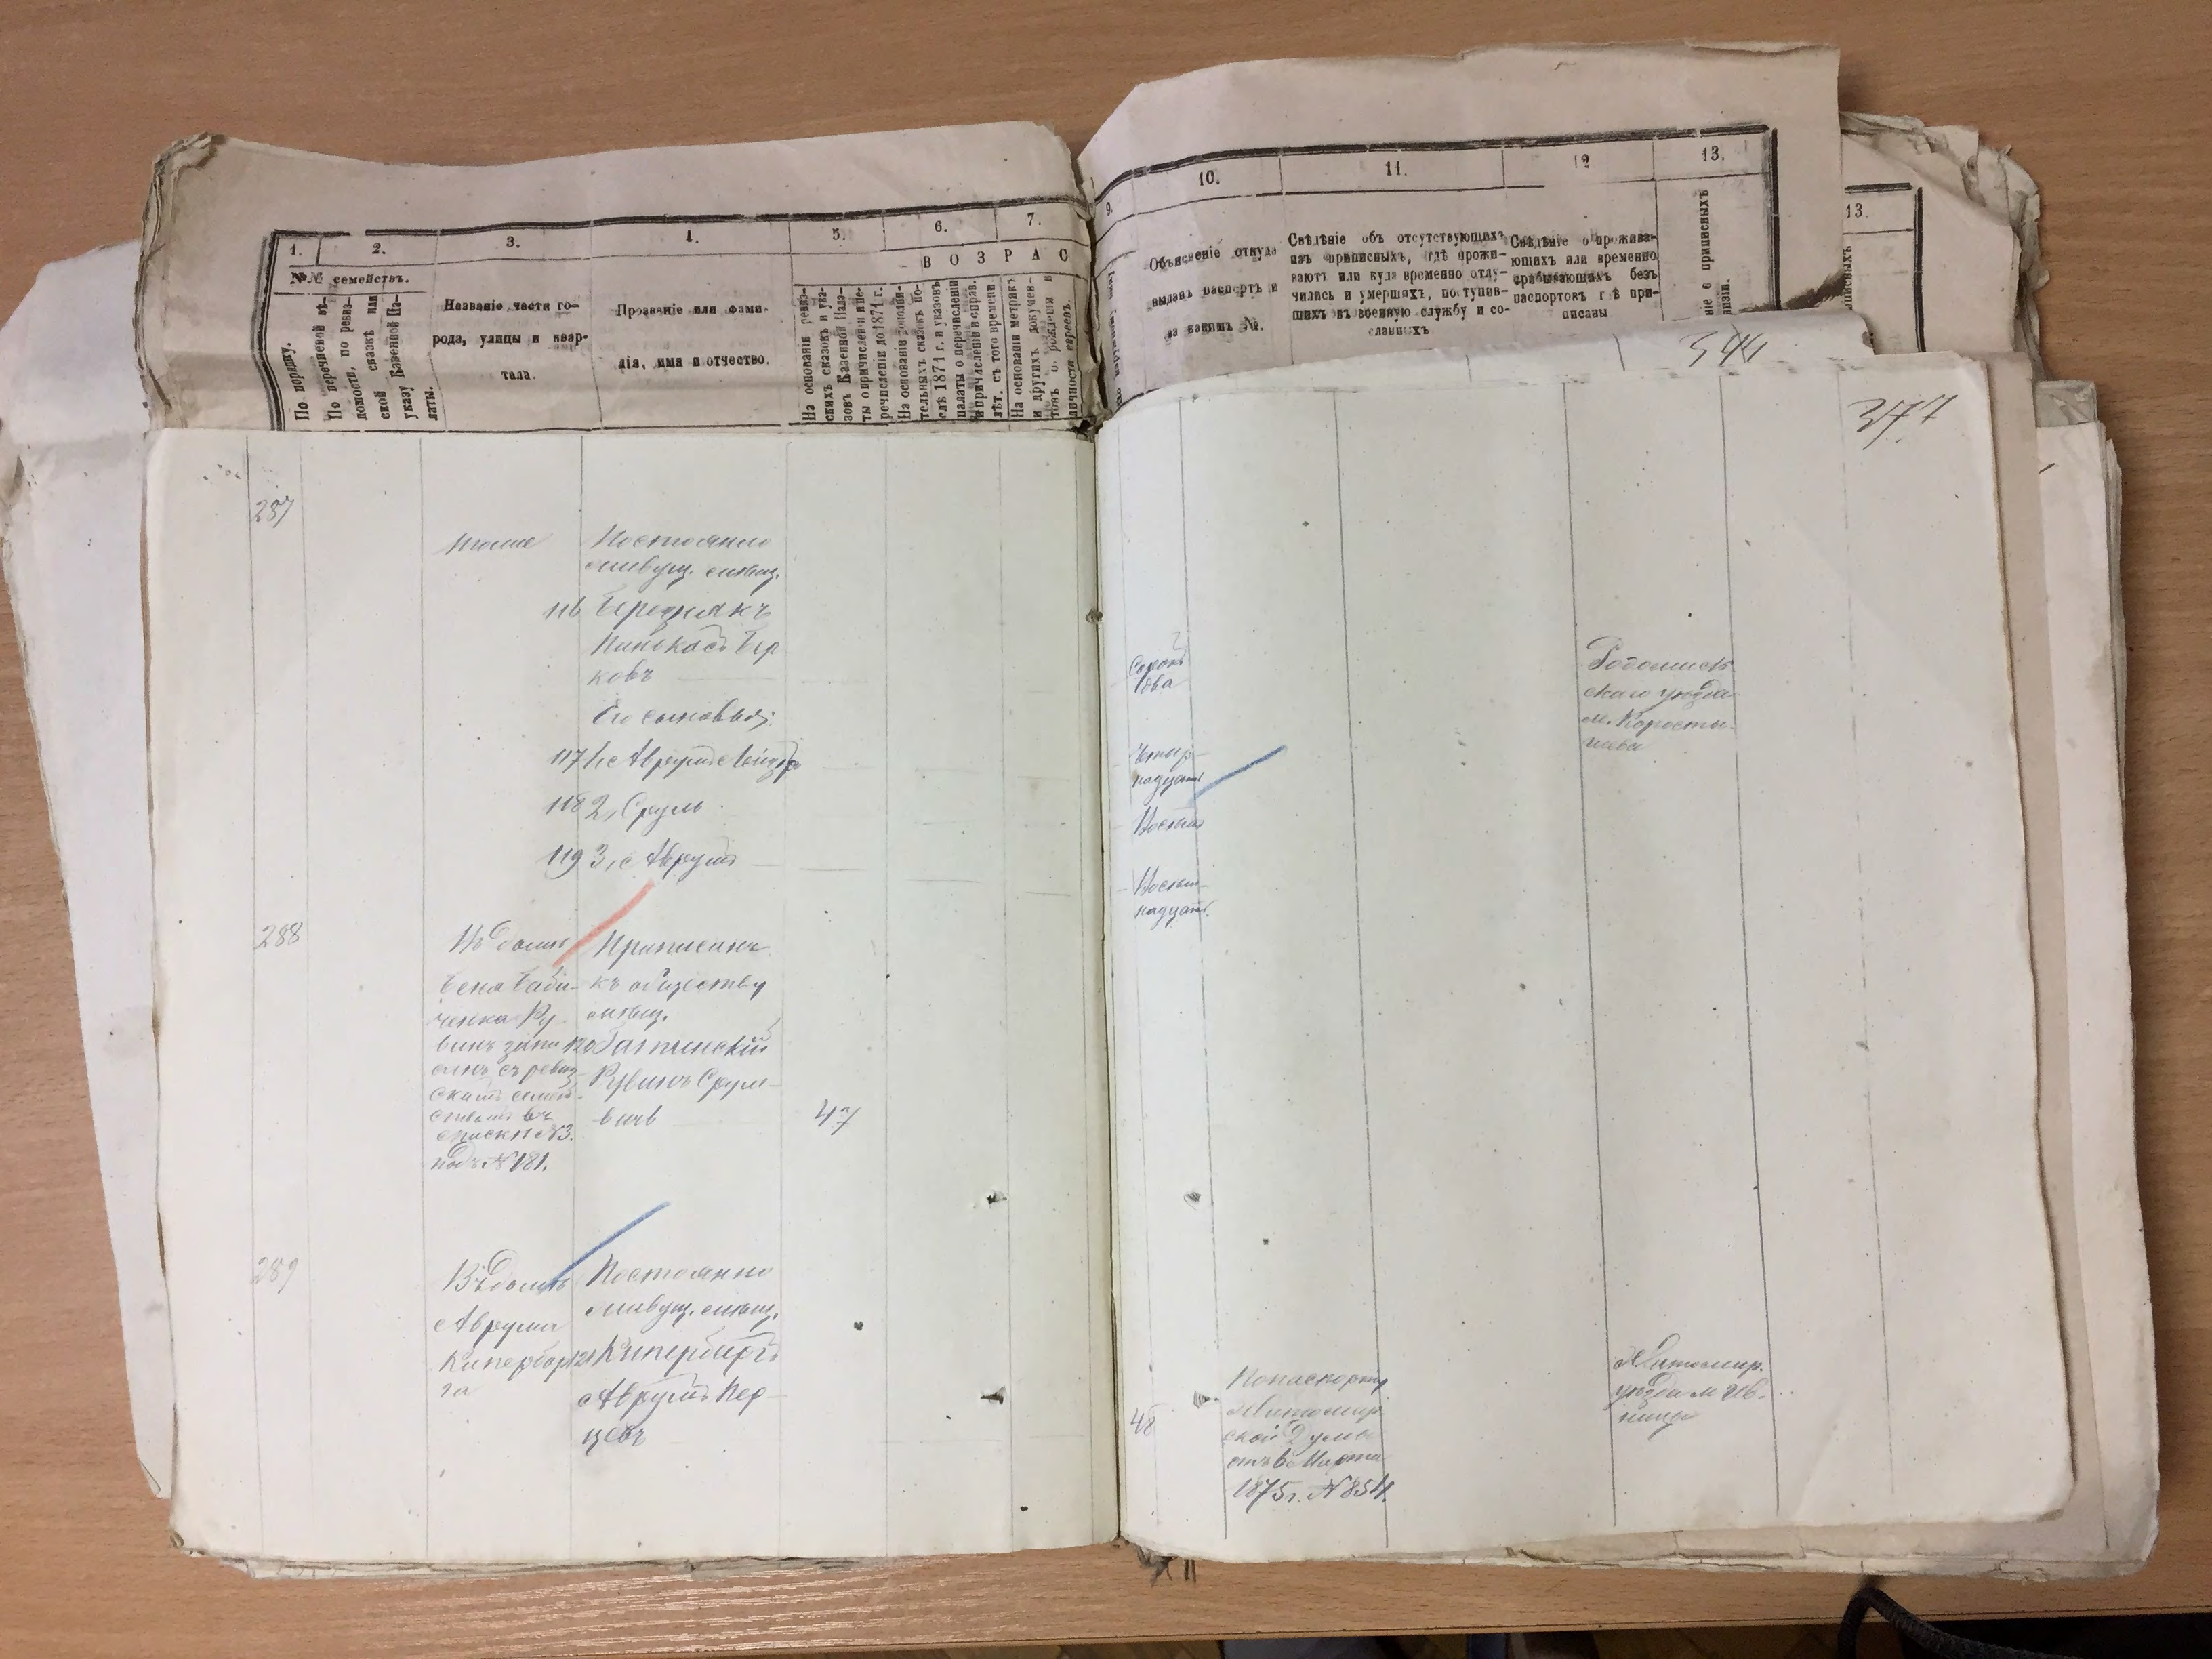 1. 2. 3. 4. 5. 6. 7.
№№ семействъ.
В О З Р А С
По порядку.
По перечневой вѣ-
домости, по ревиз-
ской сказкѣ или
указу Казенной Па-
латы.
Названіе части го-
рода, улицы и квар-
тала.
Прозваніе или фами-
лія, имя и отчество.
На основаніи ревиз-
скихъ сказокъ и ука-
зовъ Казенной Пала-
ты о причисленіи и пе-
речисленіи до 1871 г.
На основаніи дополни-
тельныхъ сказокъ по-
слѣ 1871 г. и указовъ
палаты о перечисленіи
и причисленіи и справ.
лѣт. съ того времени.
На основаніи метрикъ
и другихъ докумен-
товъ о рожденіи и
личности евреевъ.
9. 10. 11. 12 13.
Объясненіе откуда
выданъ паспортъ и
за какимъ №.
Свѣдѣніе объ отсутствующихъ
изъ приписныхъ, гдѣ прожи-
ваютъ или куда временно отлу-
чились и умершихъ, поступив-
шихъ въ военную службу и со-
сланныхъ
Свѣдѣніе о прожива-
ющихъ или временно
прибывающихъ безъ
паспортовъ гдѣ при-
писаны
ніе о приписныхъ
визіи.
13.
344
377
287
тоже
Постоянно
живущ. мѣщ.
116 Березнякъ
Пинхасъ Бер
ковъ
Его сыновья:
117 1, Аврумъ Лейзер
118 2, Сруль
119 3, Аврумъ
Сорокъ
два
Четыр-
надцать
Восемь
Восем-
надцать.
Радомысль
скаго уѣзда
м. Коросты-
шева
288
Въ домѣ
Бена Баби-
ченка Ру-
винъ запи
санъ съ ревиз
скимъ семей-
ствомъ въ
спискѣ №3.
подъ №181.
Приписанъ
къ обществу
мѣщ.
120 Галпинскій
Рувинъ Сруле-
вичъ
47
289
Въ домѣ
Аврума
Кипербар
га
Постоянно
живущ. мѣщ.
121 Кипербаргъ
Аврумъ Пер-
цевъ
48
По паспорту
Житомир
ской Думы
отъ 6 Марта
1875 г. №854.
Житомир.
уѣзда м. Ив-
ницы